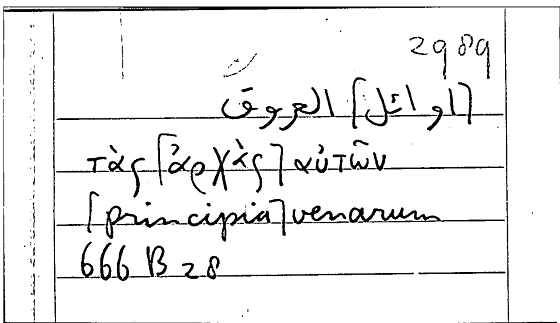 2989
[اوائل] العروق
τὰς [ἀρχὰς] αὐτῶν
[principia] venarum
666 B 28